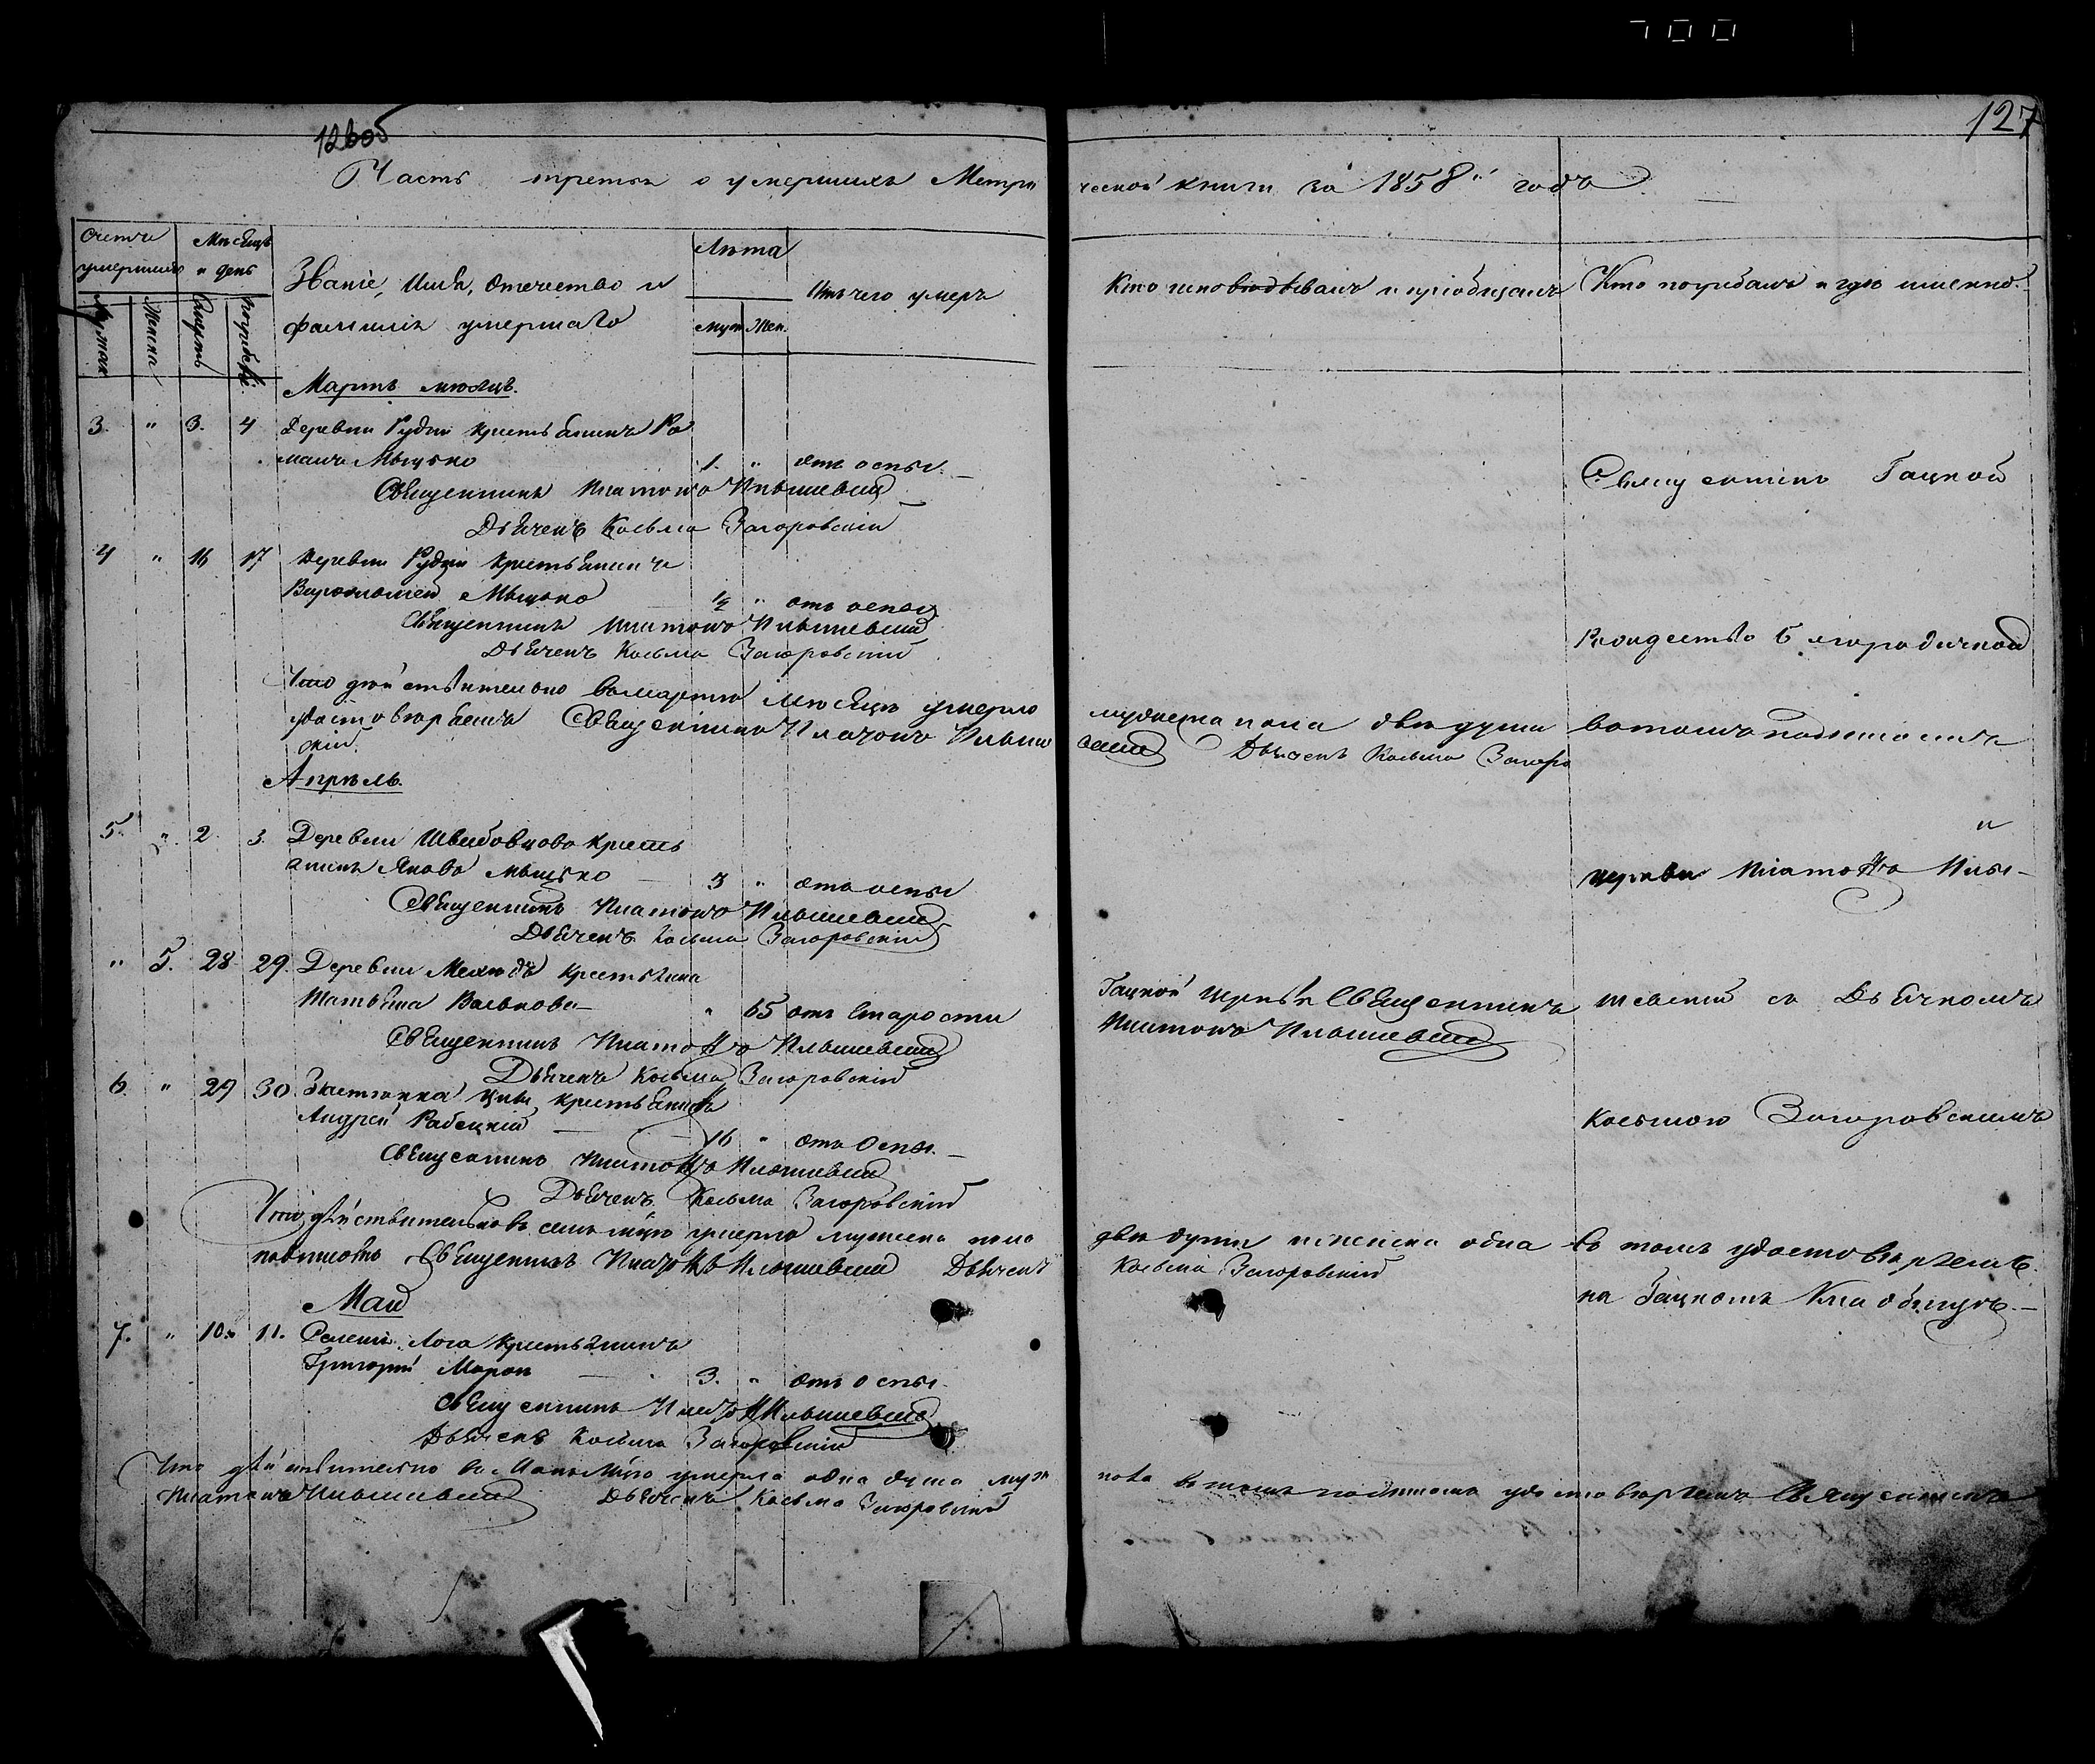 700
126об
127
Часть третья о умершихъ Метри
ческой книги за 1858й годъ
Счетъ умершихъ
Мѣсяцъ и день
Званіе, Имя, Отечество и
фамилія умершаго
Лѣта
Отъ чего умеръ
Кто исповѣдывалъ и пріобщалъ
Кто погребалъ и гдѣ именно.
Мужск
Женска
Смерть
Погребенія
муж Жен.
Мартъ мѣсяцъ.
3. " 3. 4 Деревни Рудни крестьянинъ Ро
манъ Мыцько 1. " отъ оспы.
Священникъ Платонъ Ильяшевичъ
Дьячекъ Косьма Загоровскій
Священникъ Гацкой
4 " 16 17 Деревни Рудни крестьянинъ
Варфоломей Мыцько 1/2 " отъ оспы
Священникъ Платонъ Ильяшевичъ
Дьячекъ Косьма Загоровскій
Рождество Богородичной
Что дѣйствительно въ мартѣ мѣсяцѣ умерло
мужеска пола двѣ души въ томъ подписомъ
удостовѣряемъ Священникъ Платонъ Ильяш
Дьячекъ Косьма Загоро
скій.
Апрѣль.
5. " 2 3. Деревни крестья
анинъ Яковъ Мыцько 3 " отъ оспы
Священникъ Платонъ Ильяшевичъ
Дьячекъ Косьма Загоровскій
церкви Платонъ Илья-
" 5. 28 29. Деревни крестьянка
Татьяна Валькова " 65 отъ Старости
Священникъ Платонъ Ильяшевичъ
Дьячекъ Косьма Загоровскій
Гацкой церкви Священникъ
Платонъ Ильяшевичъ
шевичъ съ Дьячкомъ
6. " 29 30 Застѣнка крестьянинъ
Андрей Рабецкій 16 " отъ Оспы.
Священникъ Платонъ Ильяшевичъ
Дьячекъ Косьма Загоровскій
Косьмою Загоровскимъ
Что дѣйствительно въ семъ мѣсяцѣ умерло мужеска пола
двѣ души и женска одна въ томъ удостовѣряемъ
Священникъ Платонъ Ильяшевичъ Дьячекъ
Косьма Загоровскій
на Гацкомъ Кладбищѣ.
Май
7. " 10. 11. Селенія Лога крестьянинъ
Григорій Марон 3. " отъ оспы.
Священникъ Платонъ Ильяшевичъ
Дьячекъ Косьма Загоровскій
Что дѣйствительно въ Маѣ мѣсяцѣ умерла одна душа муж
пола въ томъ подписомъ удостовѣряемъ Священникъ
Платонъ Ильяшевичъ Дьячекъ Косьма Загоровскій